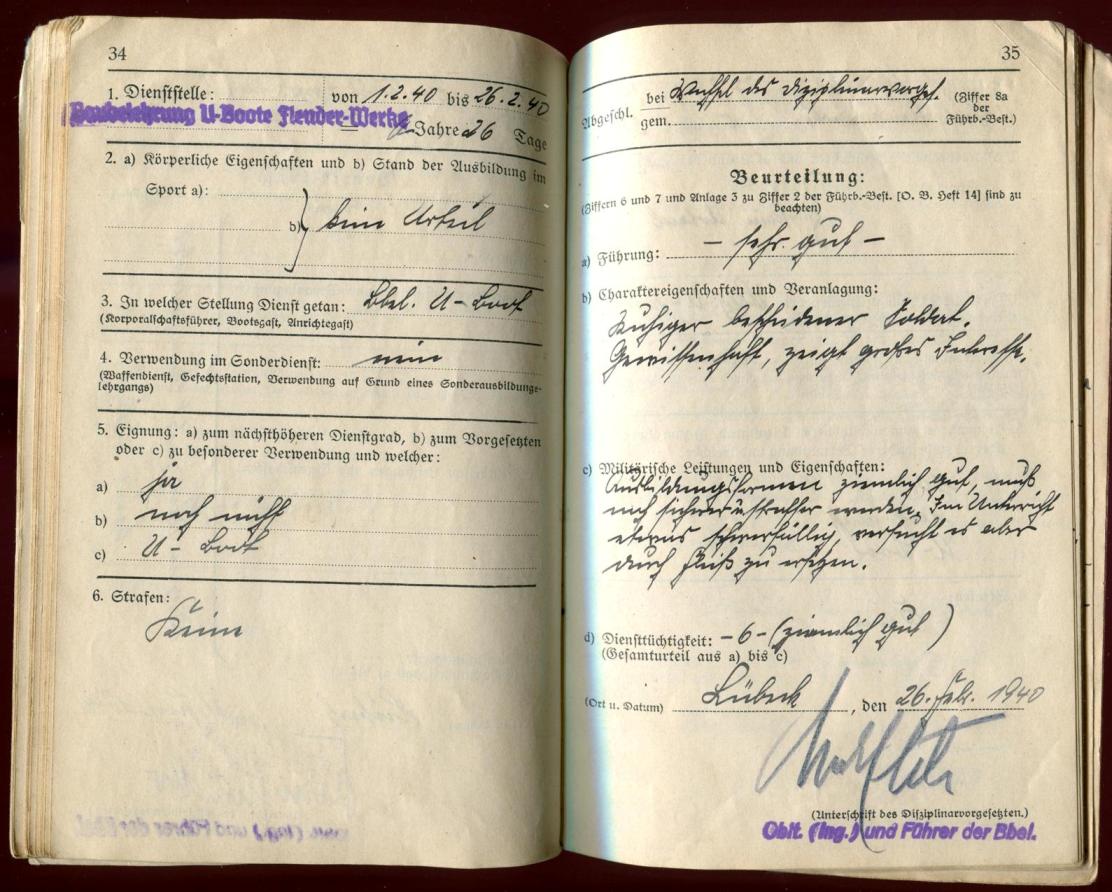 34
1. Dienststelle: von 1.2.40 bis 26.2.40
Baubelehrung U-Boote Flender-Werke
Jahre 26 Tage
2. a) Körperliche Eigenschaften und b) Stand der Ausbildung im
Sport a):
b) kein Urteil
3. In welcher Stellung Dienst getan: Bbel. U-Boot
(Korporalschaftsführer, Bootsgast, Anrichtegast)
4. Verwendung im Sonderdienst: nein
(Waffendienst, Gefechtsstation, Verwendung auf Grund eines Sonderausbildungs-
lehrgangs)
5. Eignung: a) zum nächsthöheren Dienstgrad, b) zum Vorgesetzten
oder c) zu besonderer Verwendung und welcher:
a) ja
b) noch nicht
c) U-Boot
6. Strafen:
Keine
35
Abgeschl. bei Wechsel des Disziplinarvorges. (Ziffer 8a
der
gem. Führb.-Best.)
Beurteilung:
(Ziffern 6 und 7 und Anlage 3 zu Ziffer 2 der Führb.-Best. [O. B. Heft 14] sind zu
beachten)
a) Führung: – sehr gut –
b) Charaktereigenschaften und Veranlagung:
Ruhiger bescheidener Soldat.
Gewissenhaft, zeigt großes Interesse.
c) Militärische Leistungen und Eigenschaften:
Ausbildungsformen ziemlich gut, muß
noch sicherer u. straffer werden. Im Unterricht
etwas schwerfällig, versucht es aber
durch Fleiß zu ersetzen.
d) Diensttüchtigkeit: – 6 – (ziemlich gut)
(Gesamturteil aus a) bis c)
(Ort u. Datum) Lübeck, den 26. Feb. 1940
(Unterschrift des Disziplinarvorgesetzten.)
Oblt. (Ing.) und Führer der Bbel.